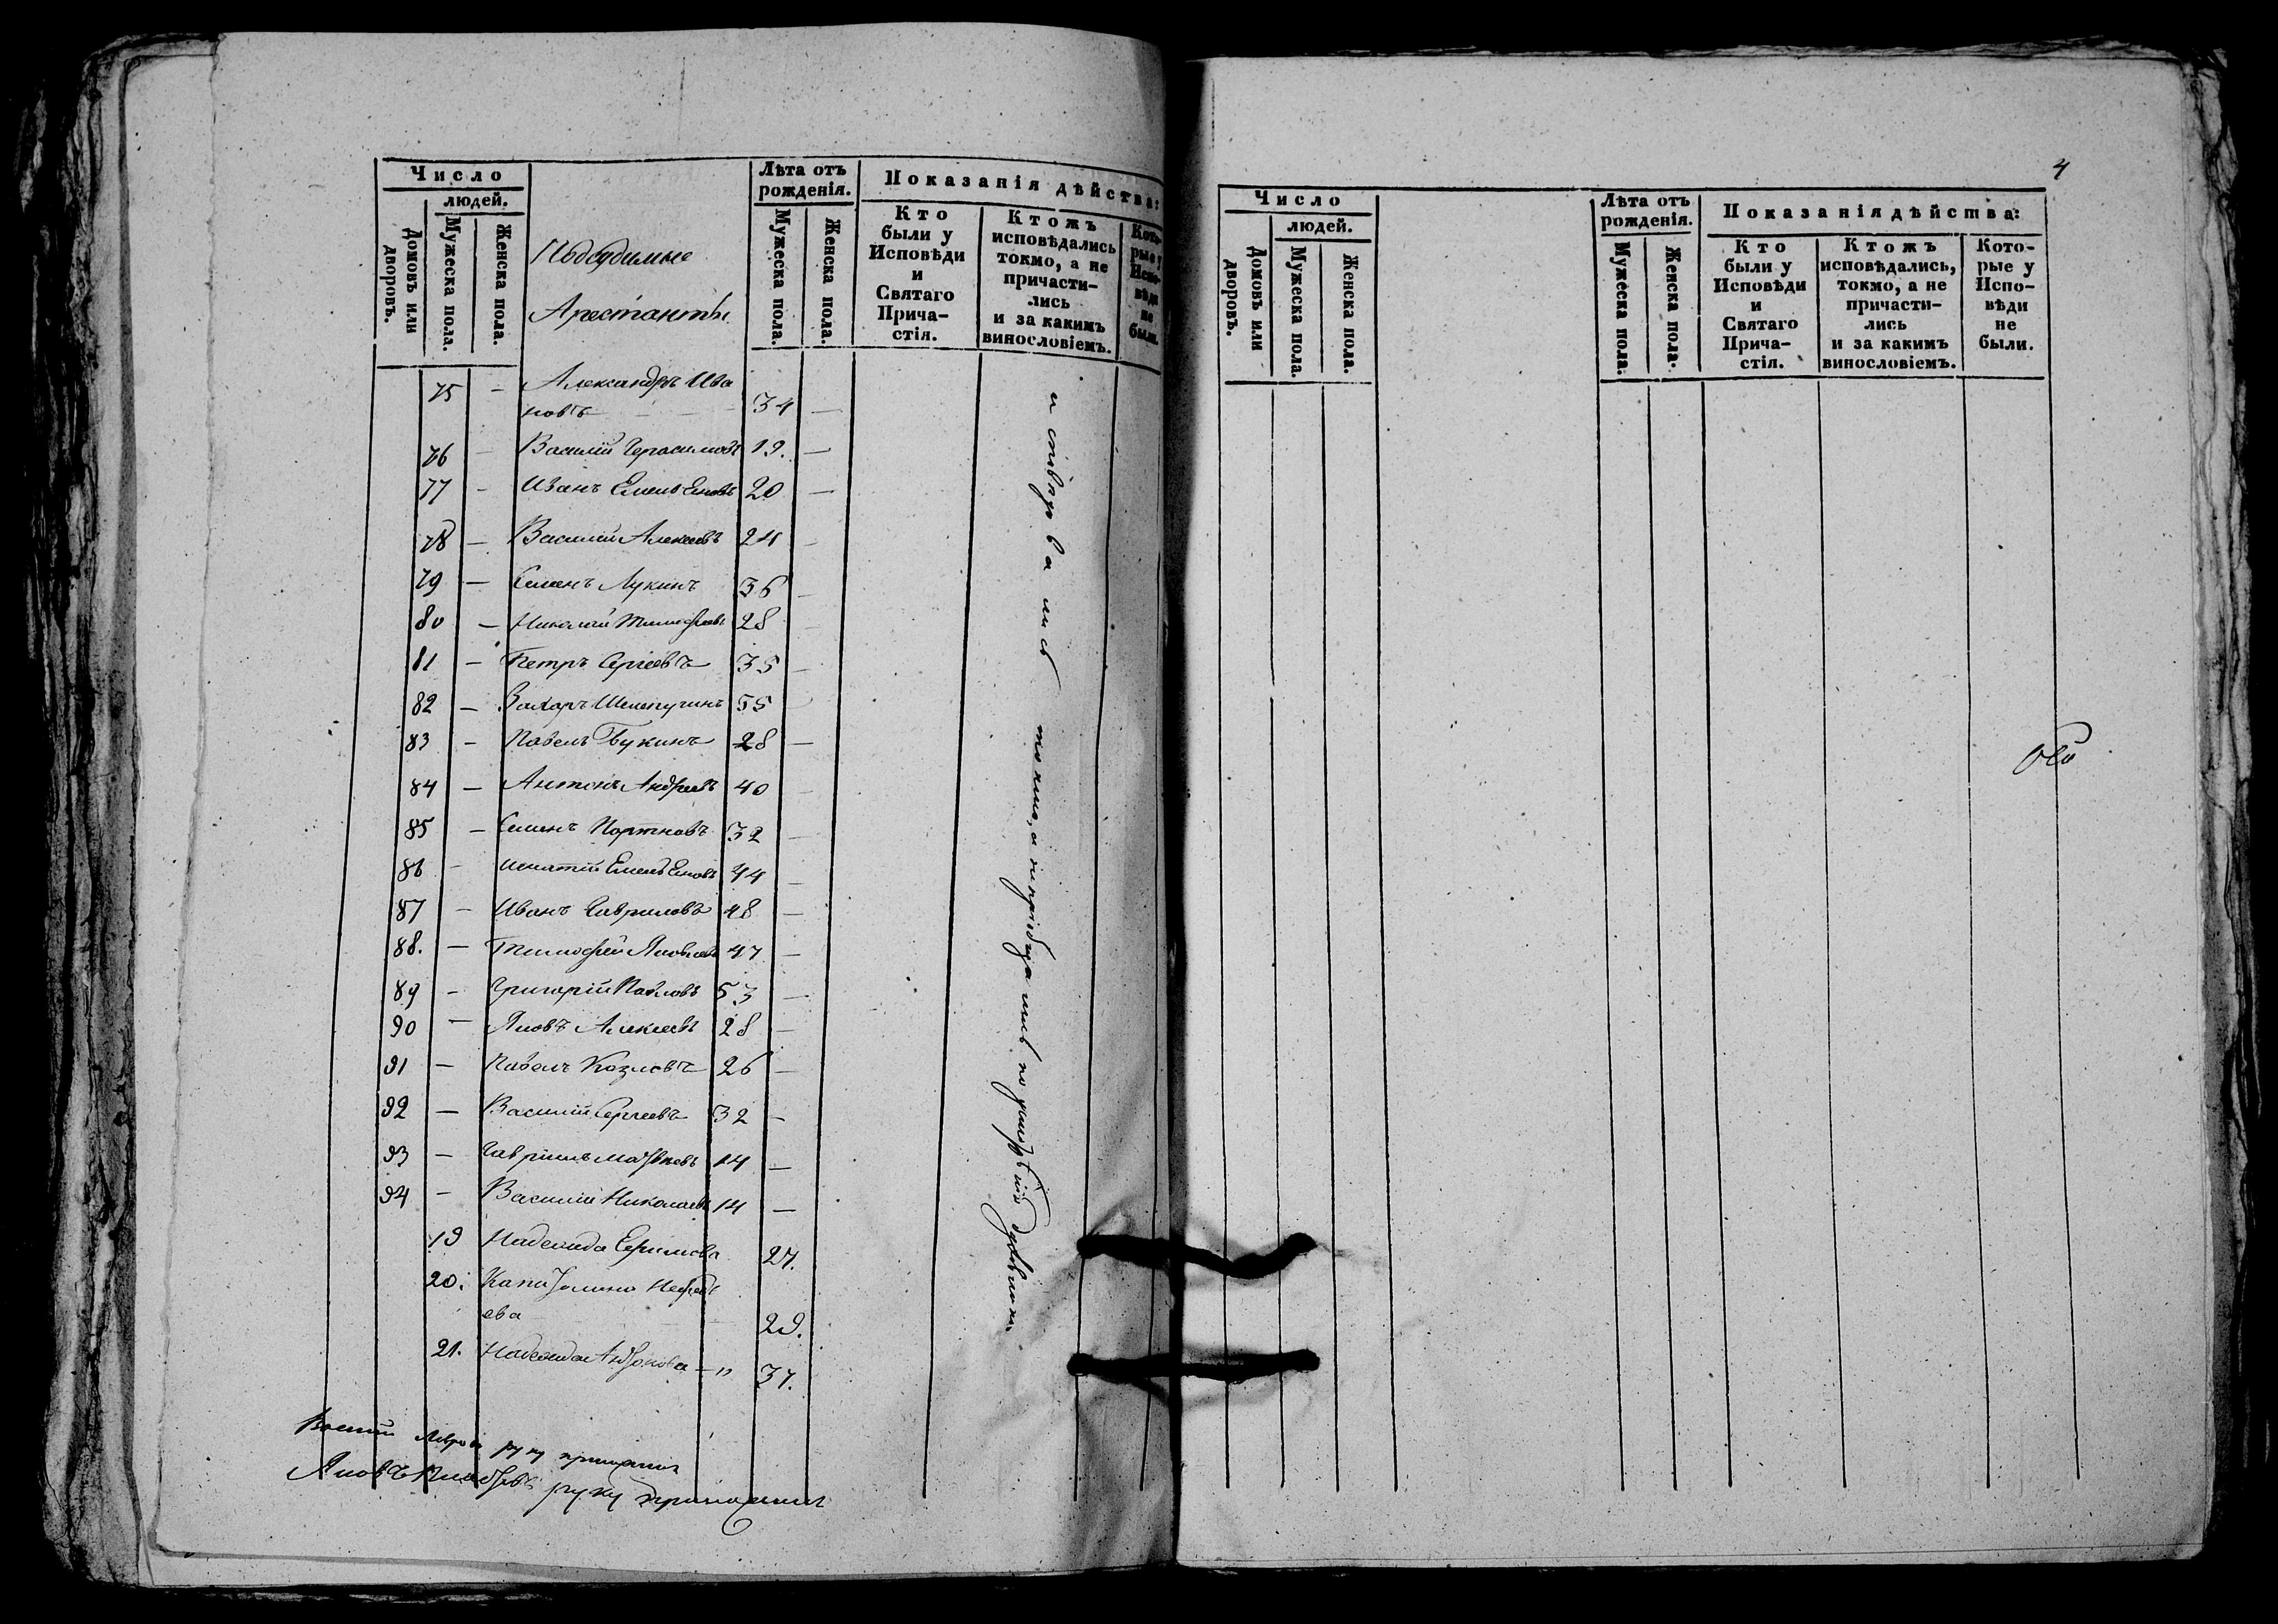 Число
людей.
Домовъ или дворовъ.
Мужеска пола.
Женска пола.
Подсудимые
Арестанты.
Лѣта отъ
рожденія.
Мужеска пола.
Женска пола.
Показанія дѣйства:
Кто
были у
Исповѣди
и
Святаго
Прича-
стія.
Ктожъ
исповѣдались
токмо, а не
причасти-
лись
и за какимъ
винословіемъ.
Кото-
рые у
Испо-
вѣди
не
были.
75 — Александръ Ива
новъ — 34 —
76 — Василій Герасимовъ 19. —
77 — Иванъ Емельяновъ 20 —
78 — Василий Алексѣевъ 24 —
79 — Семенъ Лукинъ 36 —
80 — Николай Тимофѣевъ 28 —
81 — Петръ Сергѣевъ 35 —
82 — Захаръ Шелепугинъ 55 —
83 — Павелъ Букинъ 28 —
84 — Антонъ Андреевъ 40 —
85 — Семенъ Портновъ 32 —
86 — Игнатій Емельяновъ 44 —
87 — Иванъ Гавриловъ 48 —
88. — Тимофей Яковлевъ 47 —
89 — Григорій Павловъ 53 —
90 — Яковъ Алексѣевъ 28 —
91 — Павелъ Козловъ 26 —
92 — Василій Сергѣевъ 32 —
93 — Гаврiилъ Матвѣевъ 14 —
94 — Василій Николаевъ 14 —
19 Надежда Ефимова 27.
20. Капитолина Нефедь
ева 29.
21. Надежда Антонова — " 37.
исповѣдовались токмо, а
руку приложилъ
Яковъ руку приложилъ
4
Число
людей.
Домовъ или дворовъ.
Мужеска пола.
Женска пола.
Лѣта отъ
рожденія.
Мужеска пола.
Женска пола.
Показанія дѣйства:
Кто
были у
Исповѣди
и
Святаго
Прича-
стія.
Ктожъ
исповѣдались,
токмо, а не
причасти-
лись
и за какимъ
винословіемъ.
Кото-
рые у
Испо-
вѣди
не
были.